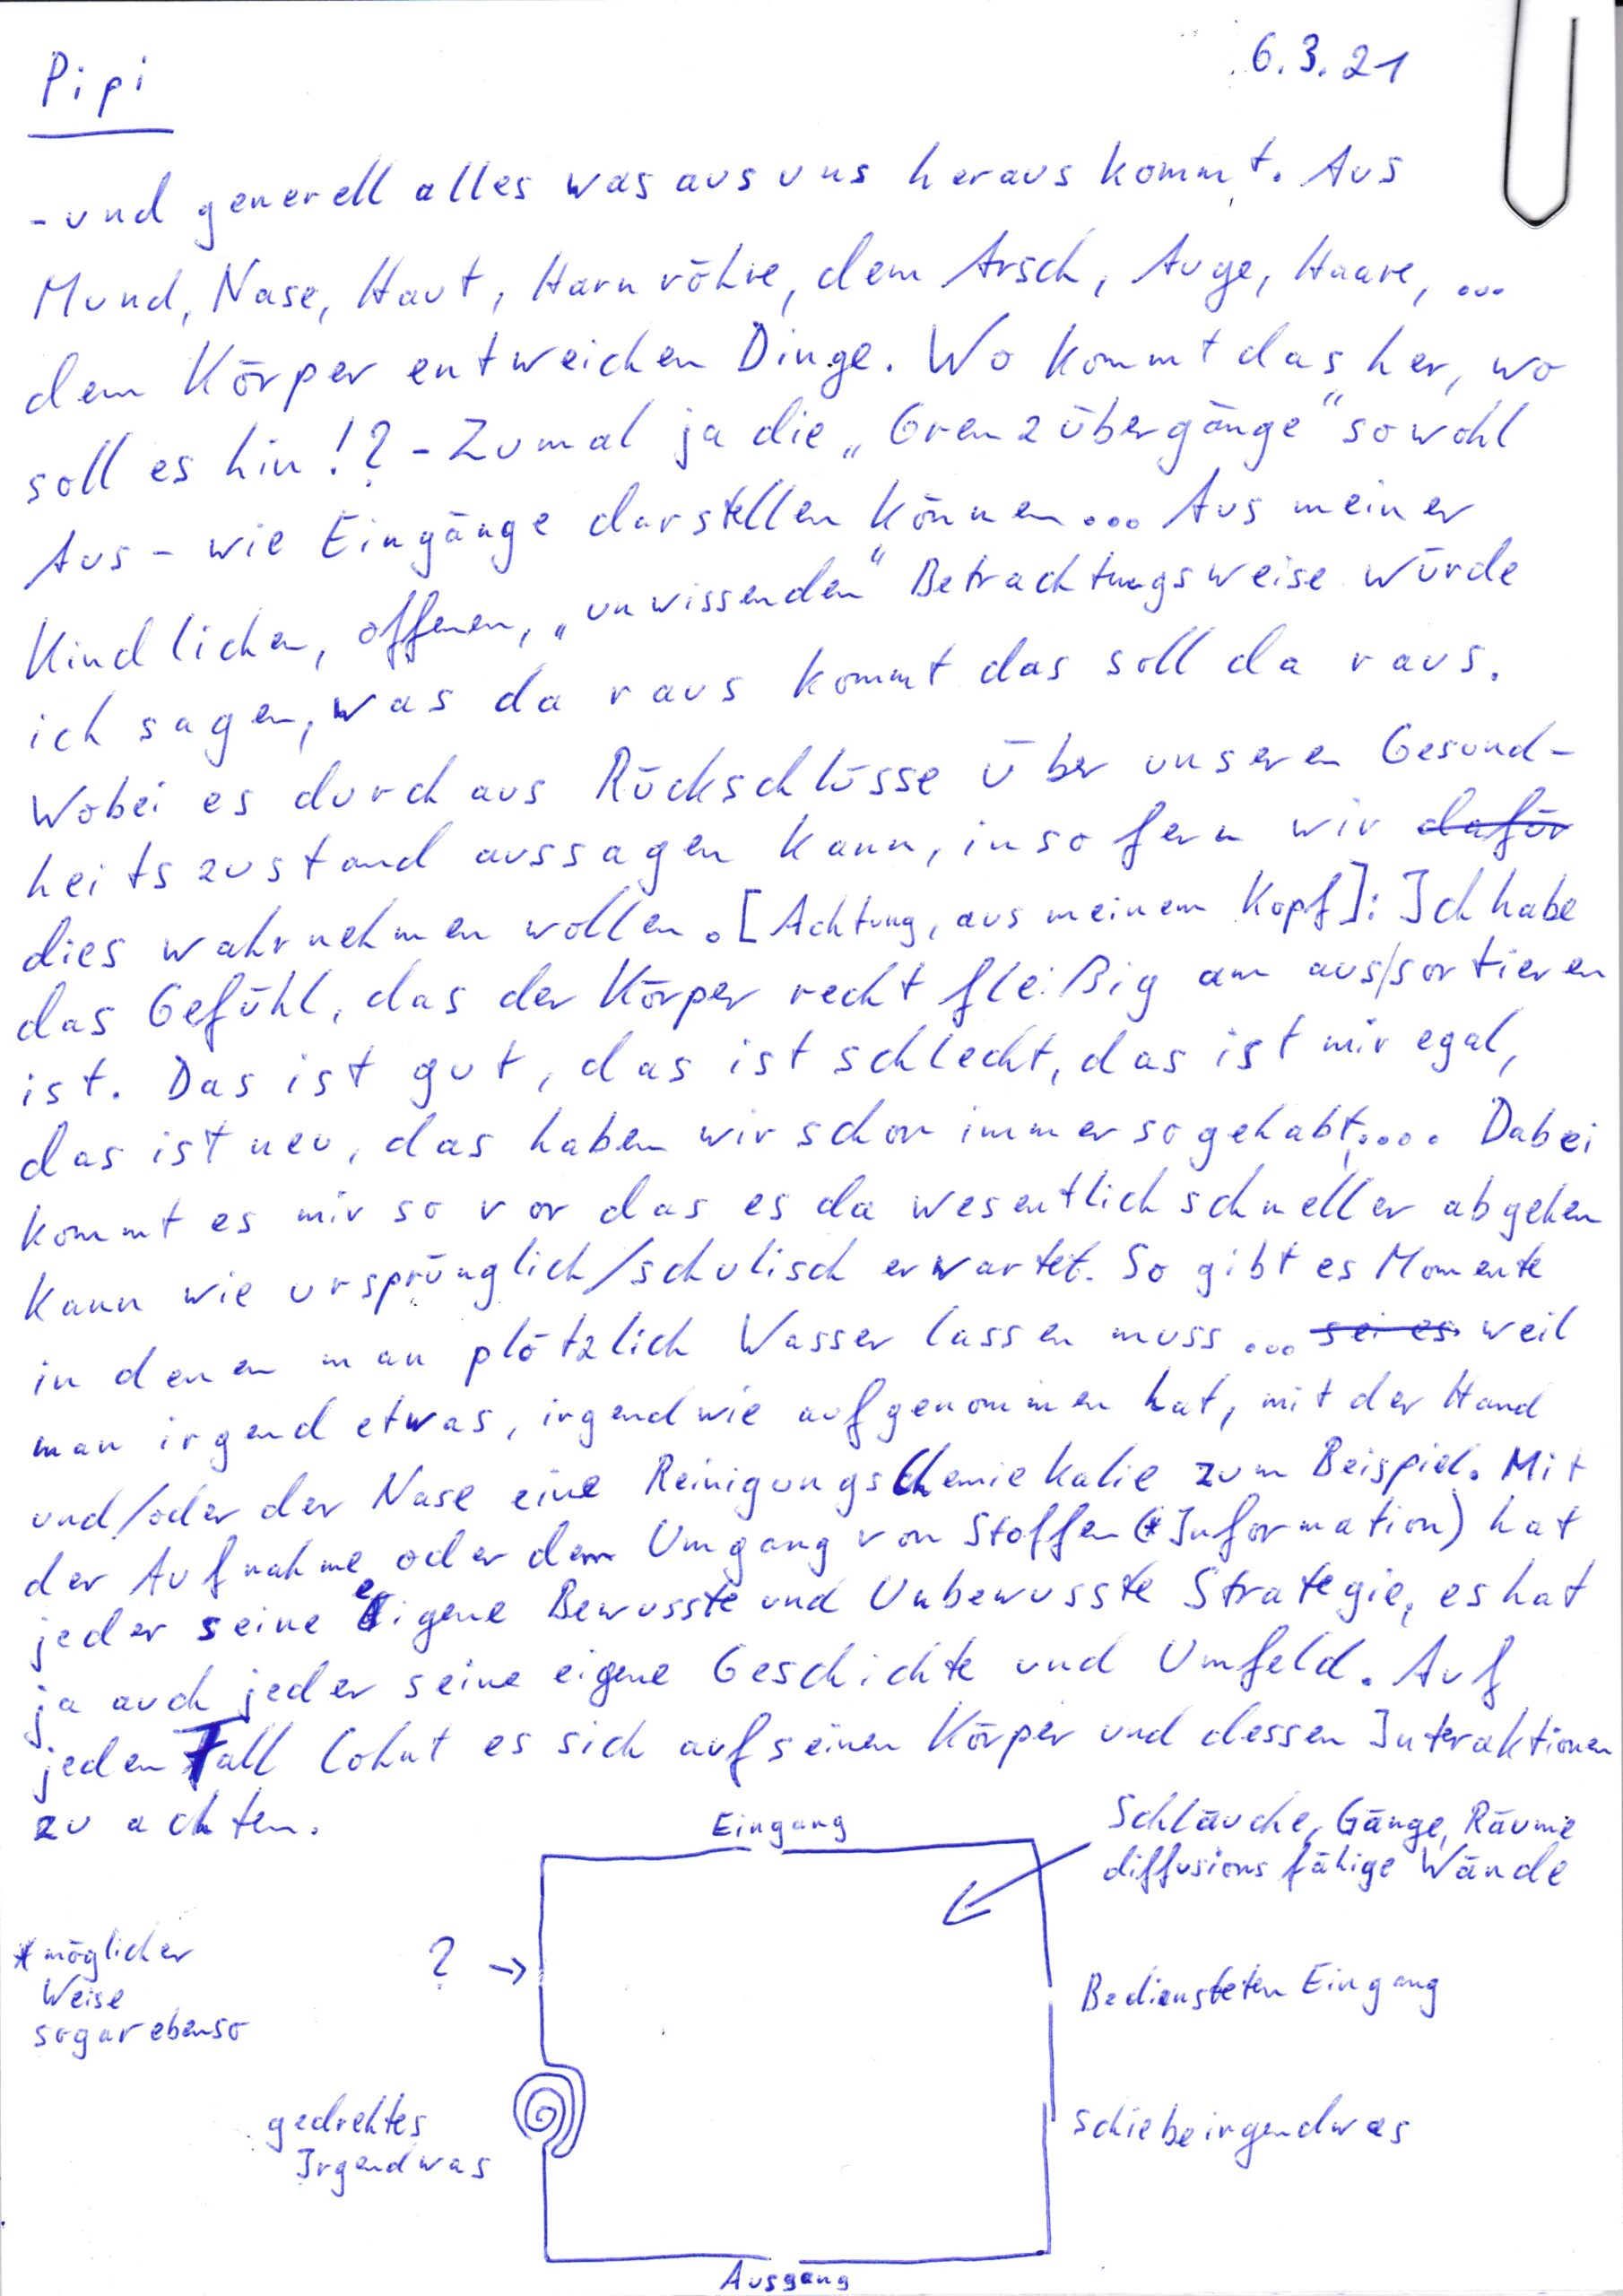 Pipi
6.3.21
- und generell alles was aus uns heraus kommt. Aus
Mund, Nase, Haut, Harnröhre, dem Arsch, Auge, Haare, ...
dem Körper entweichen Dinge. Wo kommt das her, wo
soll es hin!? - Zumal ja die „Grenzübergänge“ sowohl
Aus- wie Eingänge darstellen können... Aus meiner
Kindlichen, offenen, „unwissenden“ Betrachtungsweise würde
ich sagen, was da raus kommt das soll da raus.
Wobei es durchaus Rückschlüsse über unseren Gesund-
heitszustand aussagen kann, insofern wir dafür
dies wahrnehmen wollen. [Achtung, aus meinem Kopf]: Ich habe
das Gefühl, das der Körper recht fleißig am aus/sortieren
ist. Das ist gut, das ist schlecht, das ist mir egal,
das ist neu, das haben wir schon immer so gehabt,.... Dabei
kommt es mir so vor das es da wesentlich schneller abgehen
kann wie ursprünglich/schulisch erwartet. So gibt es Momente
in denen man plötzlich Wasser lassen muss ... sei es weil
man irgend etwas, irgendwie aufgenommen hat, mit der Hand
und/oder der Nase eine Reinigungschemiekalie zum Beispiel. Mit
der Aufnahme oder dem Umgang von Stoffen (*Information) hat
jeder seine eigene Bewusste und Unbewusste Strategie, es hat
ja auch jeder seine eigene Geschichte und Umfeld. Auf
jeden Fall lohnt es sich auf seinen Körper und dessen Interaktionen
zu achten.
Eingang
Schläuche, Gänge, Räume
diffusions fähige Wände
* möglicher
Weise
sogar ebenso
? →
Bediensteten Eingang
gedrehtes
Irgendwas
schiebeirgendwas
Ausgang